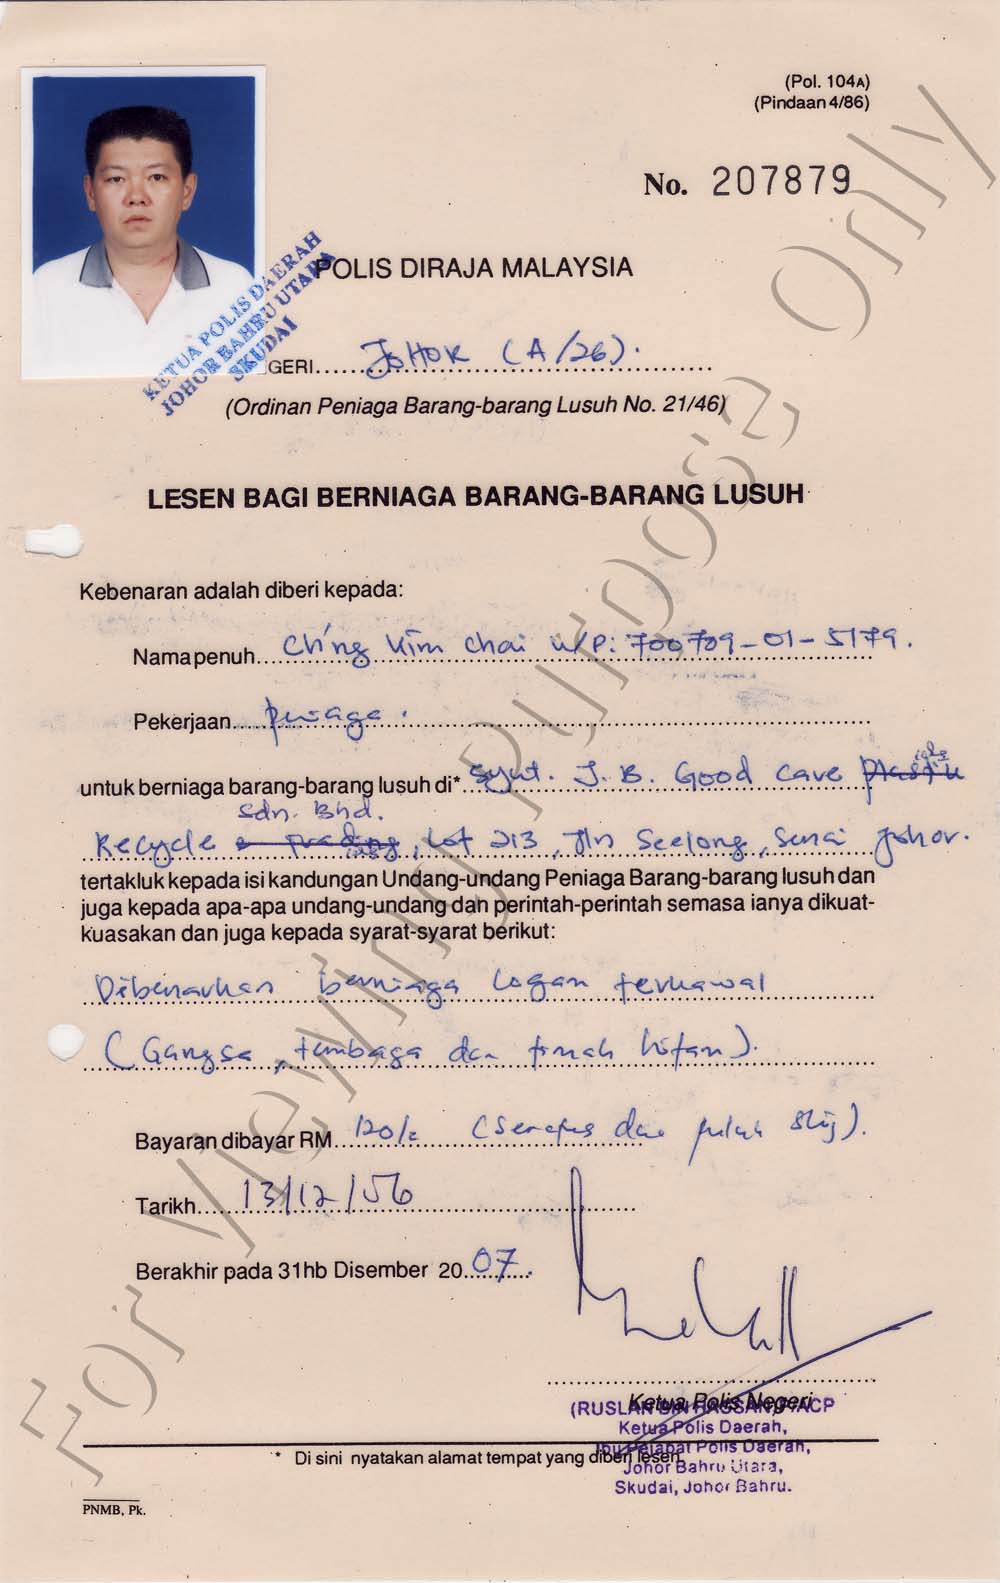 (Pol. 104A)
(Pindaan 4/86)
No. 207879
POLIS DIRAJA MALAYSIA
KETUA POLIS DAERAH
JOHOR BAHRU UTARA
SKUDAI
GERI JOHOR (A/26).
(Ordinan Peniaga Barang-barang Lusuh No. 21/46)
LESEN BAGI BERNIAGA BARANG-BARANG LUSUH
Kebenaran adalah diberi kepada:
Nama penuh Ching Kim Chai K/P: 700709-01-5179.
Pekerjaan peniaga.
untuk berniaga barang-barang lusuh di* Sykt. J.B. Good Care Plastik
Sdn. Bhd.
Recycle Trading, Lot 213, Jln Seelong, Senai Johor.
tertakluk kepada isi kandungan Undang-undang Peniaga Barang-barang lusuh dan
juga kepada apa-apa undang-undang dah perintah-perintah semasa ianya dikuat-
kuasakan dan juga kepada syarat-syarat berikut:
Dibenarkan berniaga logam terkawal
(Gangsa, tembaga dan timah hitam).
Bayaran dibayar RM 120/- (Seratus dua puluh shj).
Tarikh 13/12/
Berakhir pada 31hb Disember 20 07.
Ketua Polis Negeri
(RUSLAN BIN HASSAN) ACP
Ketua Polis Daerah,
Ibu Pejabat Polis Daerah,
Johor Bahru Utara,
Skudai, Johor Bahru.
* Di sini nyatakan alamat tempat yang diberi lesen
PNMB, Pk.
For Viewing Purpose Only